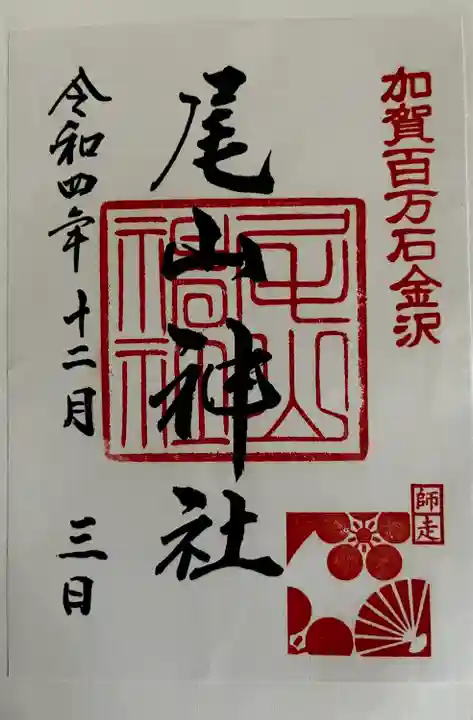 加賀百万石金沢
師走
尾山神社
尾山
神社
令和四年十二月三日